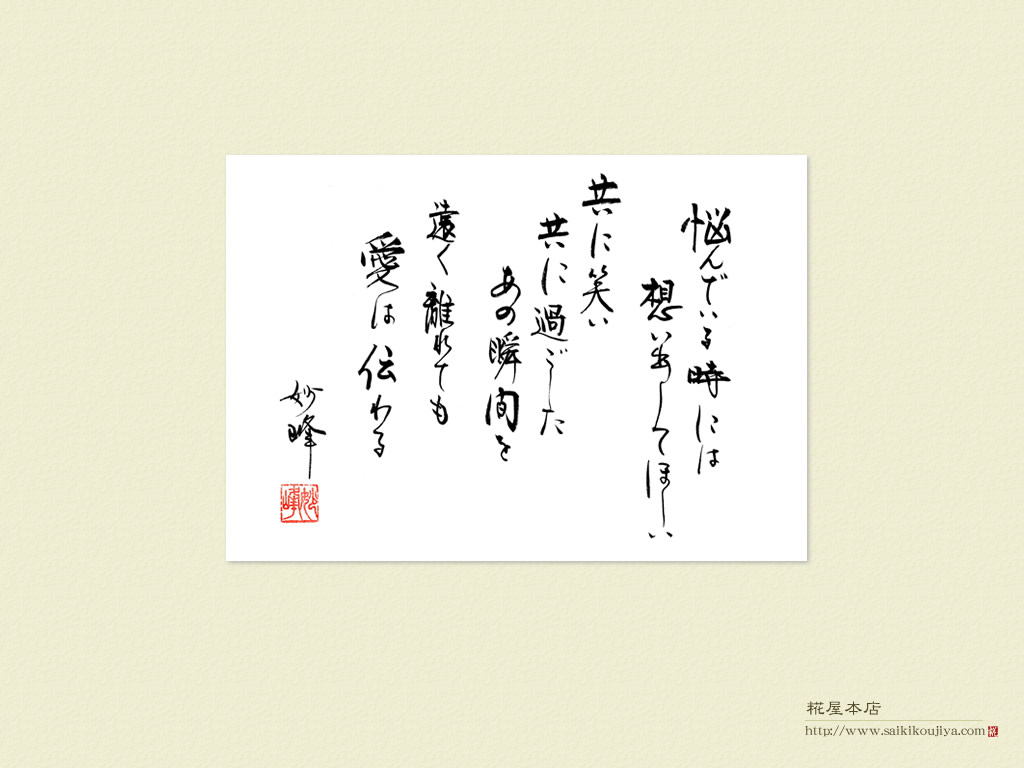 悩んでいる時には
想い出してほしい
共に笑い
共に過ごした
あの瞬間を
遠く離れても
愛は伝わる
妙峰
妙峰
糀屋本店
http://www.saikikoujiya.com
糀